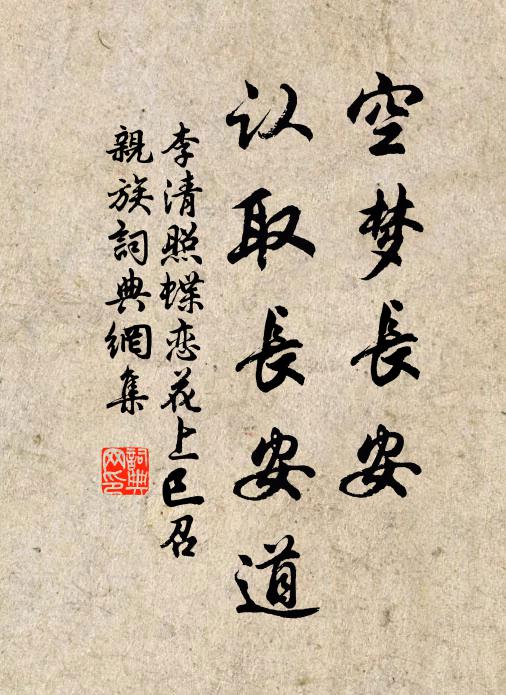 空梦長安
认取長安道
李清照蝶恋花上巳召
親族詞典網集
詞典
网印